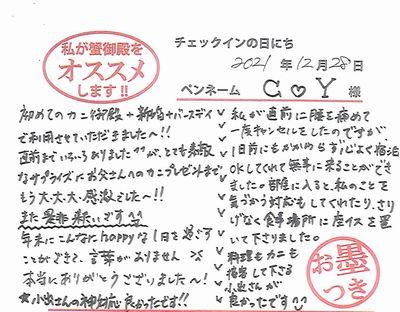 私が蟹御殿を
オススメ
します!!
チェックインの日にち
2021年12月28日
ペンネーム C♡Y 様
初めてのカニ御殿+新婚+バースデイ
で利用させていただきました〜!!
直前までいろいろありましたが、とても素敵
なサプライズにお父さんへのカニプレゼントまで
もう大・大・大・感激でした〜!!
また是非来たいです
年末にこんなにhappyな1日を過ごす
ことができて、言葉がありません
本当にありがとうございました〜!
☆小出さんの神対応良かったです!!
私が直前に腰を痛めて
一度キャンセルをしたのですが、
1日前にもかかわらず心よく宿泊
OKしてくれて無事に来ることができ
ました。部屋に入ると、私のことを
気づかう対応もしてくれたり、さり
げなく食事場所に座イスを置
いて下さりました。
料理もカニも
最高で
良かったです
お墨
つき